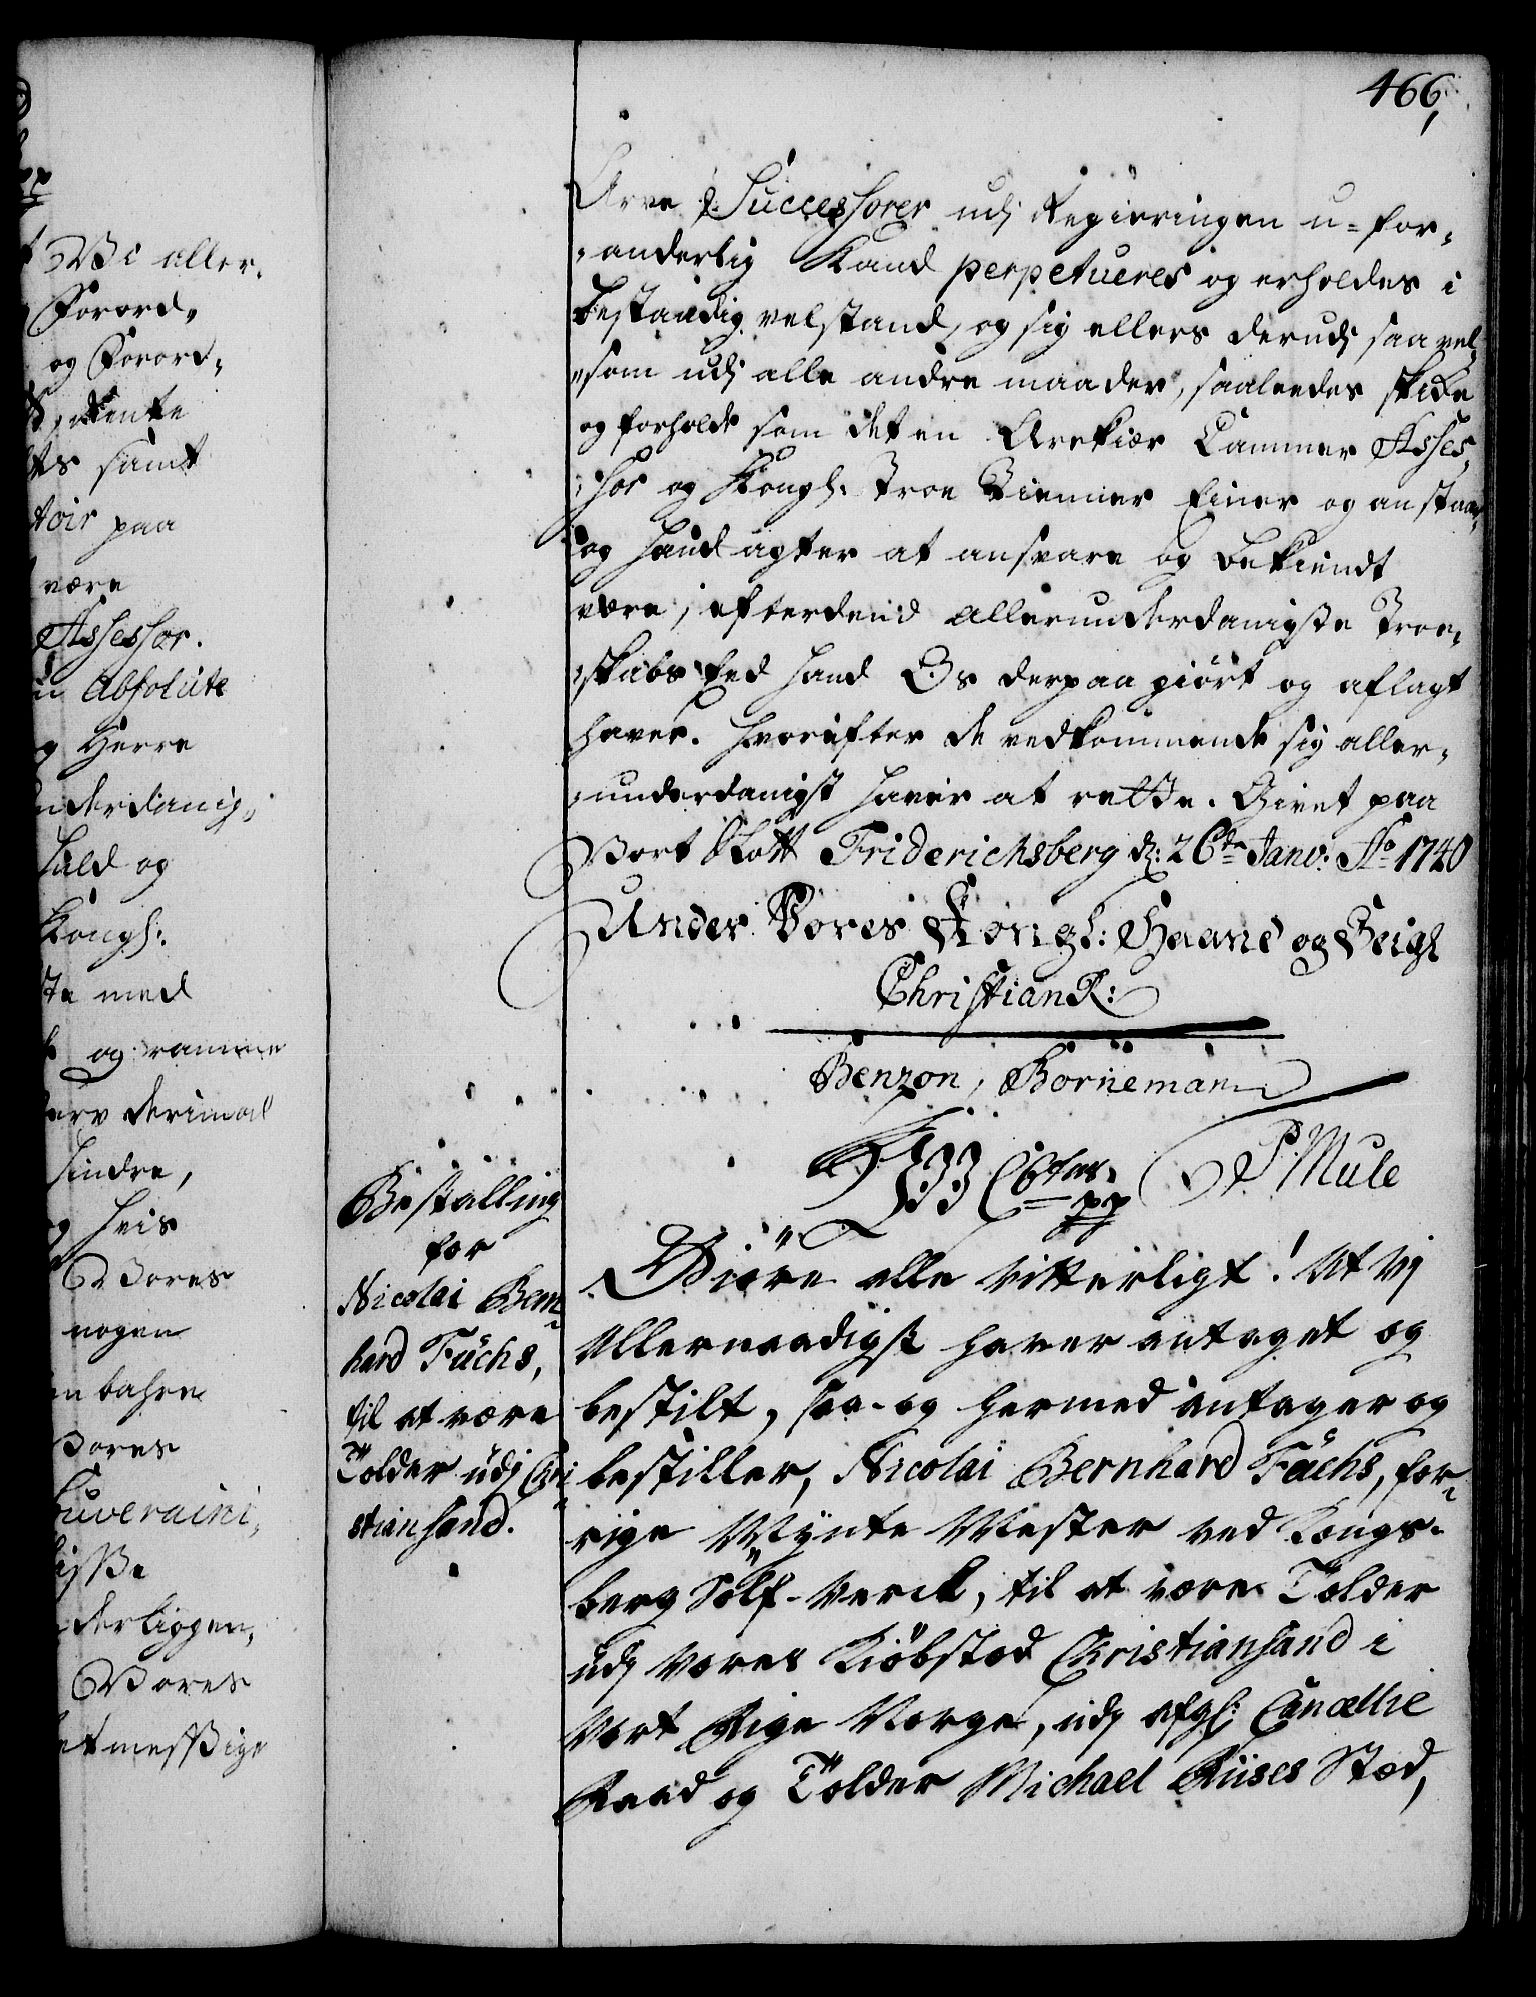 466,
Arve Successorer udj Regieringen u=for,
,anderlig Kand perpetueres og erholdes i
bestandig velstand, og sig ellers derudj saa vel,
,som udj alle andre maader, saaledes skike
og forholde som det en Ærekiær Cammer Asses,
,sor og Kongl: Troe Tienner Eigner og anstaar,
og hand agter at ansvare og bekiendt
være, efter dend allerunderdanigste Troe,
,skabs Eed hand Os derpaa giört og aflagt
haver. Hvorefter de vedkommende sig aller,
,underdanigst haver at rette. Givet paa
Vort Slott Friderichsberg d: 26de Janv: Ao 1740
Under Vores Kongl: Haand og Zeigl
Christian R:
Benzon, Bornemann
P: Mule
Bestalling
for
Nicolai Bern
hard Fuchs,
til at være
Tolder udj Chri
stiansand.
C 6ter
pp
Giöre alle vitterligt! At Vj
Allernaadigst haver antaget og
bestilt, saa-og hermed antager og
bestiller, Nicolai Bernhard Fuchs, for
rige Mynte Mester ved Kongs-
berg Sölf-Verck, til at være Tolder
udj Vores Kiöbsted Christiansand i
Vort Rige Norge, udj afgl: Cancellie
Raad og Tolder Michael Ruses Sted,
Vi aller,
Forord,
og Forord,
Rente
samt
toir paa
være
Assessor.
Absolute
Herre
nderdanig,
huld og
Kongl:
med
og ramme
derimod
hindre,
hvis
Vores
nogen
bahre
Vores
Souveraini,
derliggen,
Vores
etmessige